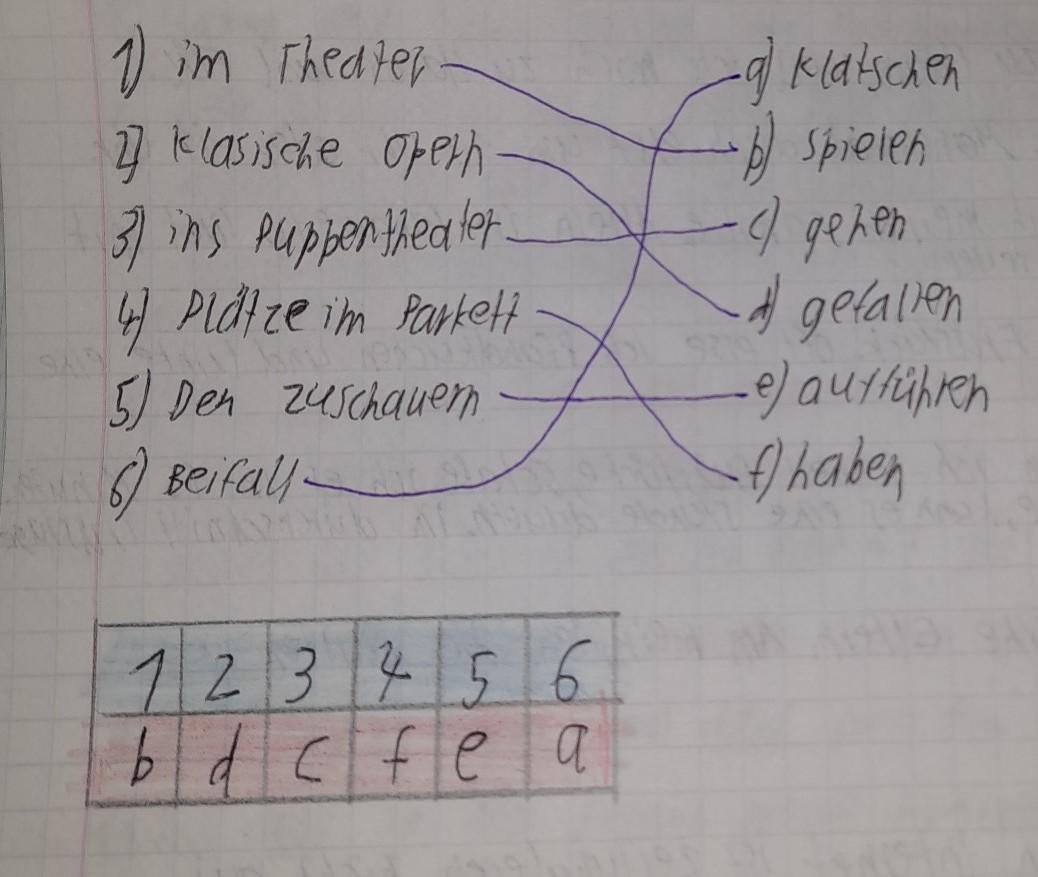 1) im Theater a) klatschen
2) klasische Opern b) spielen
3) ins Puppentheater c) gehen
4) Plätze im Parkett d) gefallen
5) Den zuschauern e) aufführen
6) Beifall f) haben
1 2 3 4 5 6
b d c f e a